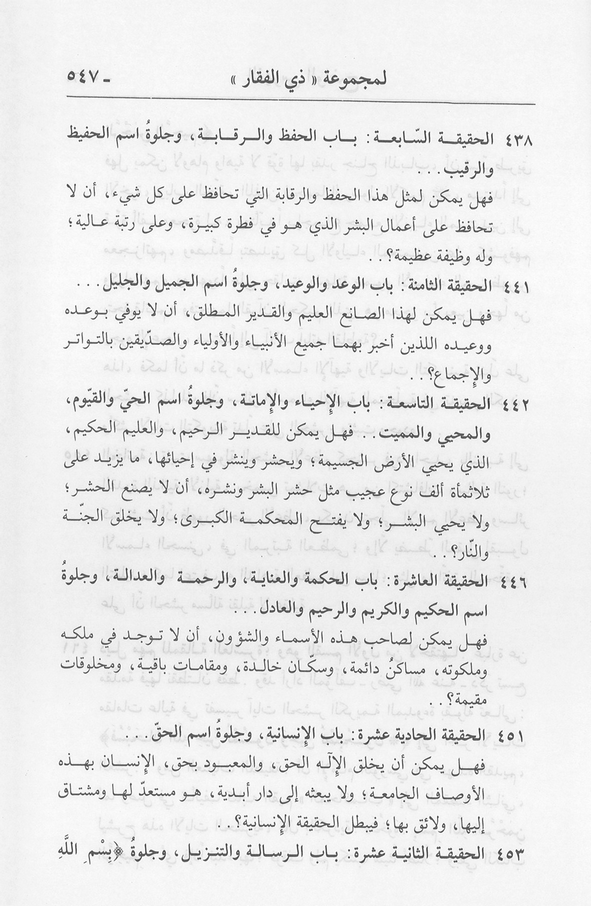 لمجموعة « ذي الفقار » ـ ٥٤٧
٤٣٨ الحقيقة السّابعة: باب الحفظ والرقابة، وجلوةُ اسم الحفيظ
والرقيب...
فهل يمكن لمثل هذا الحفظ والرقابة التي تحافظ على كل شيء، أن لا
تحافظ على أعمال البشر الذي هو في فطرة كبيرة، وعلى رتبة عالية؛
وله وظيفة عظيمة؟..
٤٤١ الحقيقة الثامنة: باب الوعد والوعيد، وجلوةُ اسم الجميل والجليل...
فهل يمكن لهذا الصانع العليم والقدير المطلق، أن لا يوفي بوعده
ووعيده اللذين أخبر بهما جميع الأنبياء والأولياء والصدّيقين بالتواتر
والإجماع؟..
٤٤٢ الحقيقة التاسعة: باب الإحياء والإماتة، وجلوةُ اسم الحيّ والقيّوم،
والمحيي والمميت.. فهل يمكن للقدير الرحيم، والعليم الحكيم،
الذي يحيي الأرض الجسيمة؛ ويحشر وينشر في إحيائها، ما يزيد على
ثلاثمأة ألف نوع عجيب مثل حشر البشر ونشره، أن لا يصنع الحشر؛
ولا يحيي البشر؛ ولا يفتح المحكمة الكبرى؛ ولا يخلق الجنّة
والنّار؟..
٤٤٦ الحقيقة العاشرة: باب الحكمة والعناية، والرحمة والعدالة، وجلوةُ
اسم الحكيم والكريم والرحيم والعادل...
فهل يمكن لصاحب هذه الأسماء والشؤون، أن لا توجد في ملكه
وملكوته، مساكنُ دائمة، وسكّان خالدة، ومقامات باقية، ومخلوقات
مقيمة؟..
٤٥١ الحقيقة الحادية عشرة: باب الإنسانية، وجلوةُ اسم الحقّ...
فهل يمكن أن يخلق الإلٓه الحق، والمعبود بحق، الإنسان بهذه
الأوصاف الجامعة؛ ولا يبعثه إلى دار أبدية، هو مستعدّ لها ومشتاق
إليها، ولائق بها؛ فيبطل الحقيقة الإنسانية؟..
٤٥٣ الحقيقة الثانية عشرة: باب الرسالة والتنزيل، وجلوةُ ﴿بِسْمِ اللَّهِ